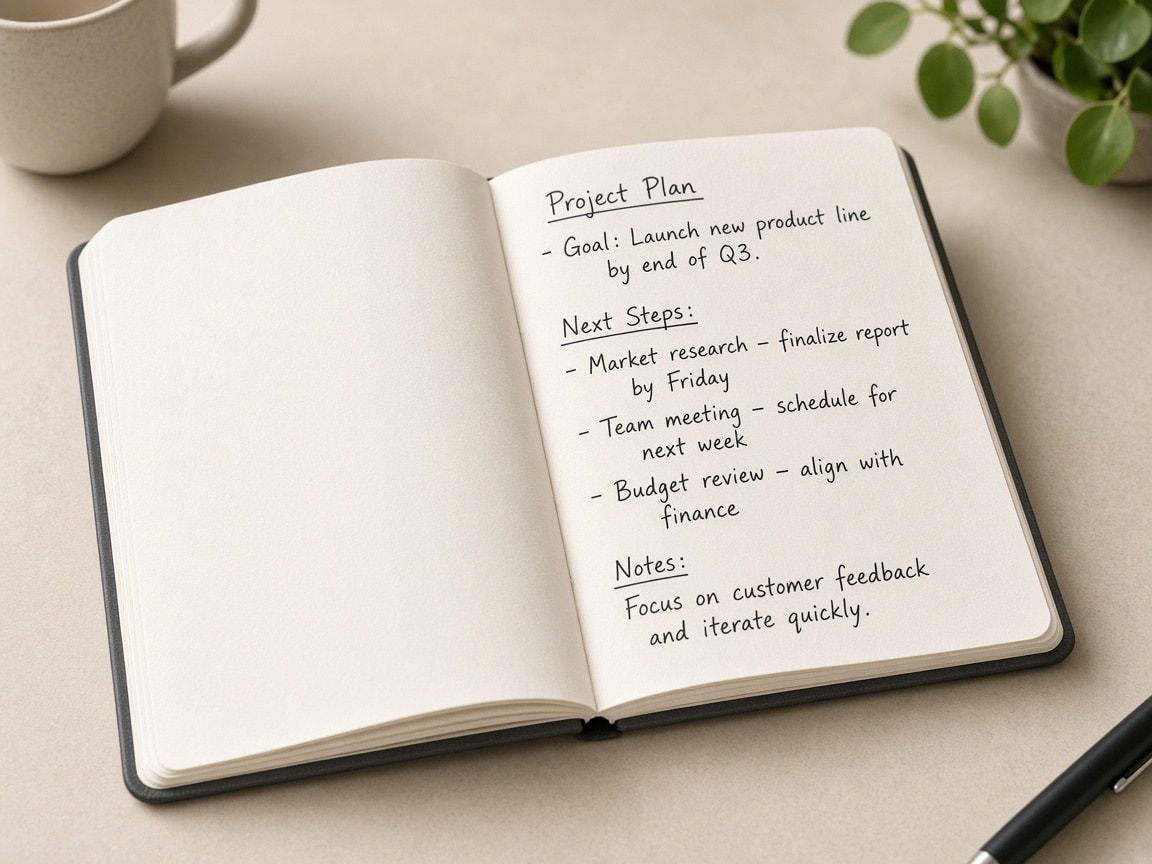 Project Plan
- Goal: Launch new product line
by end of Q3.
Next Steps:
- Market research – finalize report
by Friday
- Team meeting – schedule for
next week
- Budget review – align with
finance
Notes:
Focus on customer feedback
and iterate quickly.